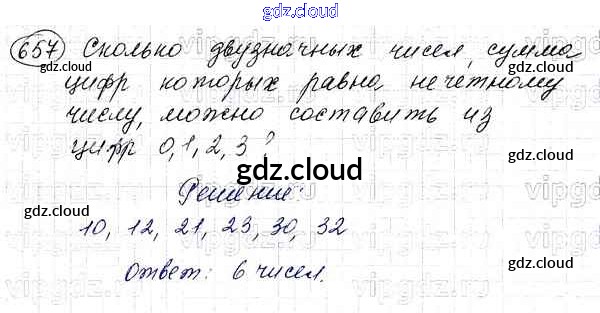 gdz.cloud
657 Сколько двузначных чисел, сумма
цифр которых равна нечетному
числу, можно составить из
цифр 0, 1, 2, 3?
Решение:
10, 12, 21, 23, 30, 32
Ответ: 6 чисел.
gdz.cloud
gdz.cloud
gdz.cloud
gdz.cloud
gdz.cloud
gdz.cloud
gdz.cloud
gdz.cloud